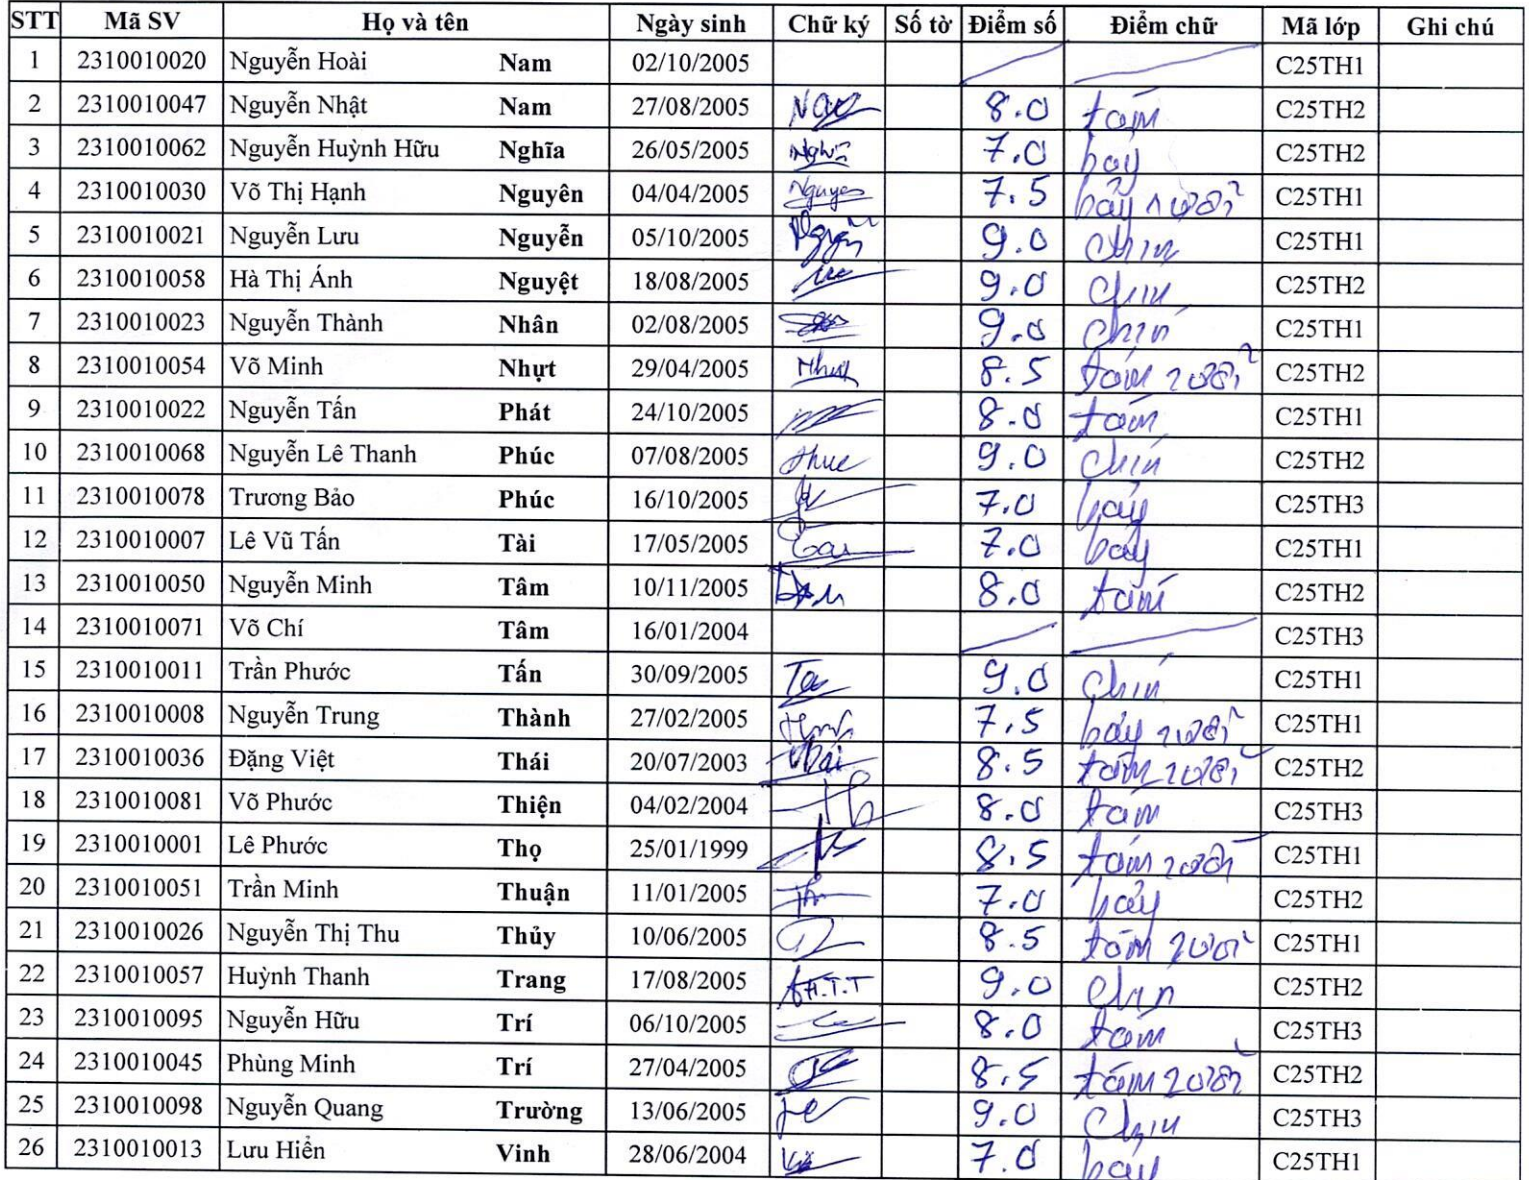 STT Mã SV Họ và tên Ngày sinh Chữ ký Số tờ Điểm số Điểm chữ Mã lớp Ghi chú
1 2310010020 Nguyễn Hoài Nam 02/10/2005 C25TH1
2 2310010047 Nguyễn Nhật Nam 27/08/2005 8.0 tám C25TH2
3 2310010062 Nguyễn Huỳnh Hữu Nghĩa 26/05/2005 7.0 bảy C25TH2
4 2310010030 Võ Thị Hạnh Nguyên 04/04/2005 Nguyen 7.5 bảy rưỡi C25TH1
5 2310010021 Nguyễn Lưu Nguyễn 05/10/2005 9.0 chín C25TH1
6 2310010058 Hà Thị Ánh Nguyệt 18/08/2005 9.0 chín C25TH2
7 2310010023 Nguyễn Thành Nhân 02/08/2005 9.0 chín C25TH1
8 2310010054 Võ Minh Nhựt 29/04/2005 Nhựt 8.5 tám rưỡi C25TH2
9 2310010022 Nguyễn Tấn Phát 24/10/2005 8.0 tám C25TH1
10 2310010068 Nguyễn Lê Thanh Phúc 07/08/2005 Phuc 9.0 chín C25TH2
11 2310010078 Trương Bảo Phúc 16/10/2005 7.0 bảy C25TH3
12 2310010007 Lê Vũ Tấn Tài 17/05/2005 7.0 bảy C25TH1
13 2310010050 Nguyễn Minh Tâm 10/11/2005 8.0 tám C25TH2
14 2310010071 Võ Chí Tâm 16/01/2004 C25TH3
15 2310010011 Trần Phước Tấn 30/09/2005 Ta 9.0 chín C25TH1
16 2310010008 Nguyễn Trung Thành 27/02/2005 7.5 bảy rưỡi C25TH1
17 2310010036 Đặng Việt Thái 20/07/2003 Thái 8.5 tám rưỡi C25TH2
18 2310010081 Võ Phước Thiện 04/02/2004 Th 8.0 tám C25TH3
19 2310010001 Lê Phước Thọ 25/01/1999 8.5 tám rưỡi C25TH1
20 2310010051 Trần Minh Thuận 11/01/2005 7.0 bảy C25TH2
21 2310010026 Nguyễn Thị Thu Thủy 10/06/2005 8.5 tám rưỡi C25TH1
22 2310010057 Huỳnh Thanh Trang 17/08/2005 H.T.T 9.0 chín C25TH2
23 2310010095 Nguyễn Hữu Trí 06/10/2005 8.0 tám C25TH3
24 2310010045 Phùng Minh Trí 27/04/2005 8.5 tám rưỡi C25TH2
25 2310010098 Nguyễn Quang Trường 13/06/2005 9.0 chín C25TH3
26 2310010013 Lưu Hiển Vinh 28/06/2004 7.0 bảy C25TH1